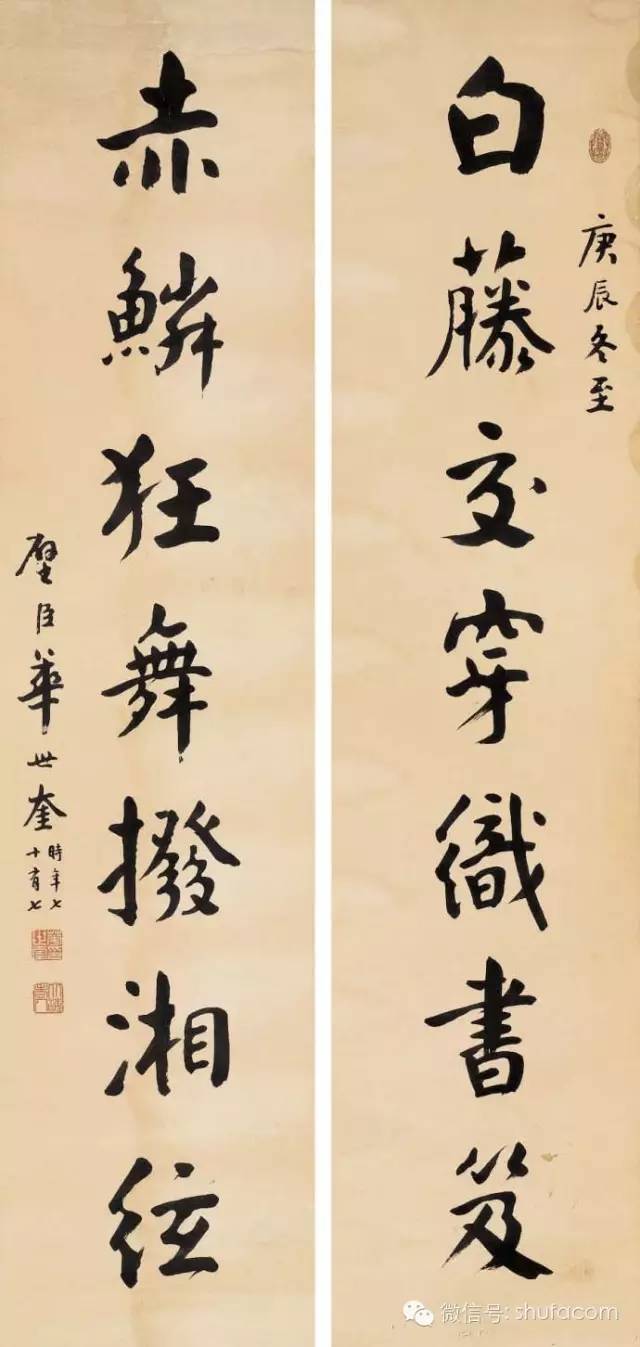 庚辰冬至
白藤交穿織書笈
赤鱗狂舞撥湘絃
璧臣華世奎
時年七
十有七
微信号: shufacom